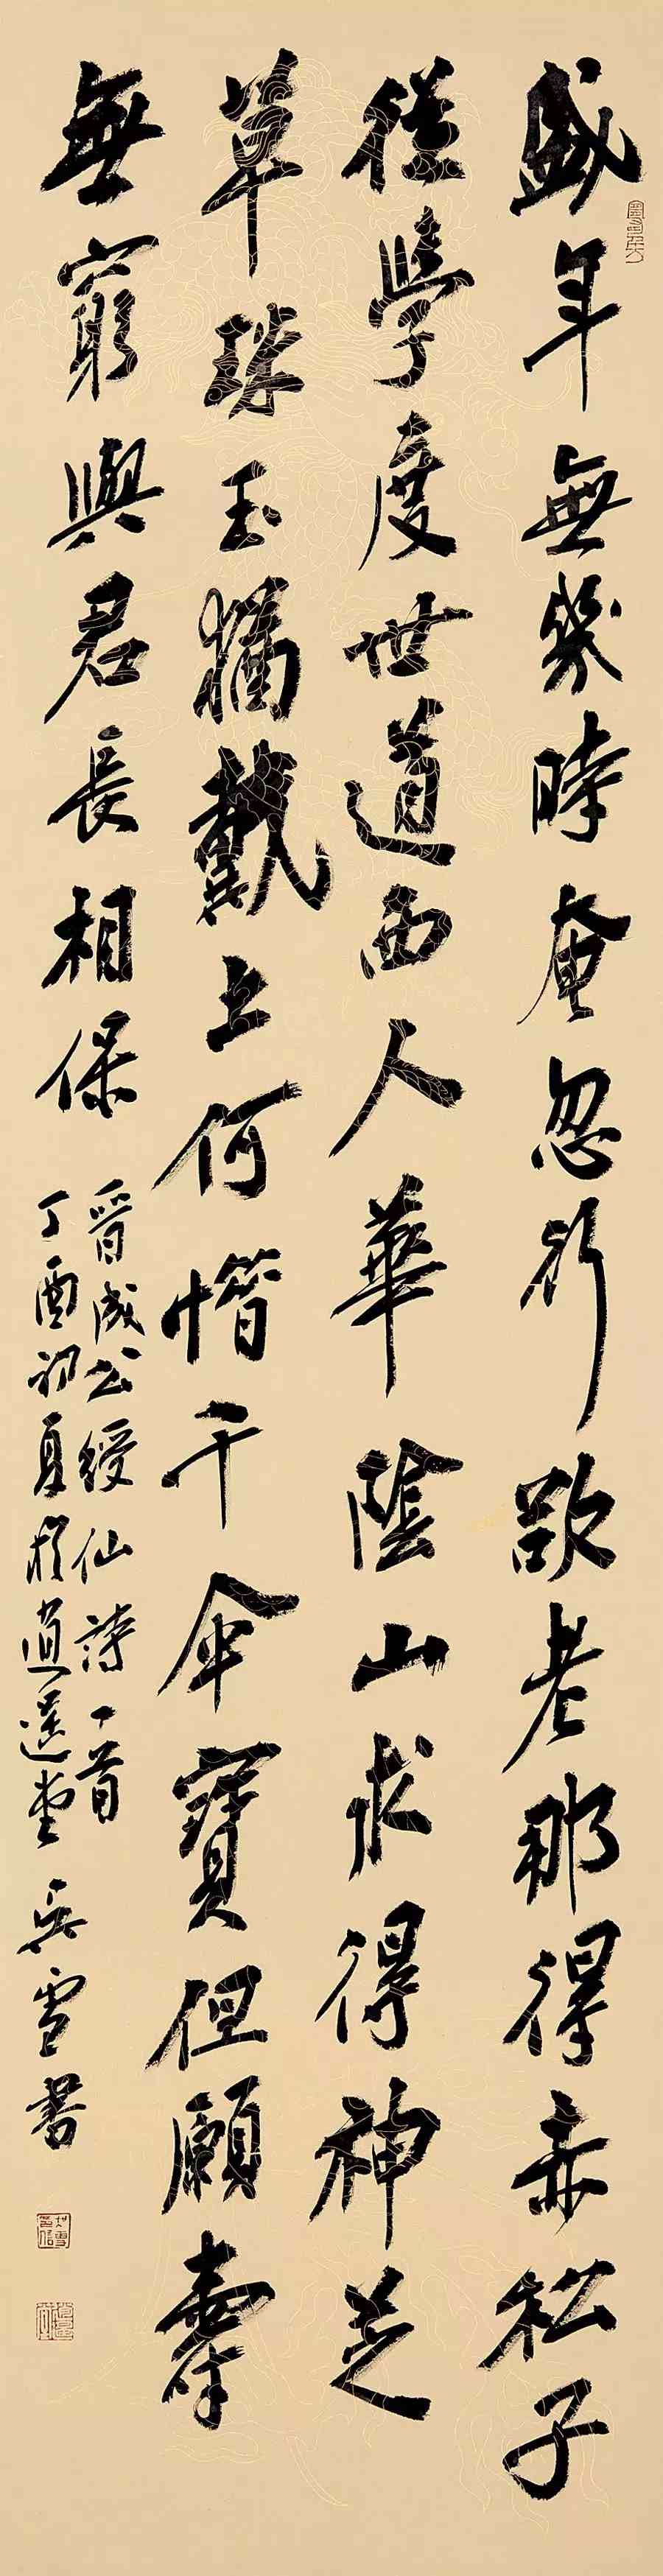 盛年無幾時奄忽行欲老那得赤松子
從學度世道西入華陰山求得神芝
草珠玉猶戴土何惜千金寶但願壽
無窮與君長相保
晉成公綏仙詩一首
丁酉初夏於道選堂 吳雪書